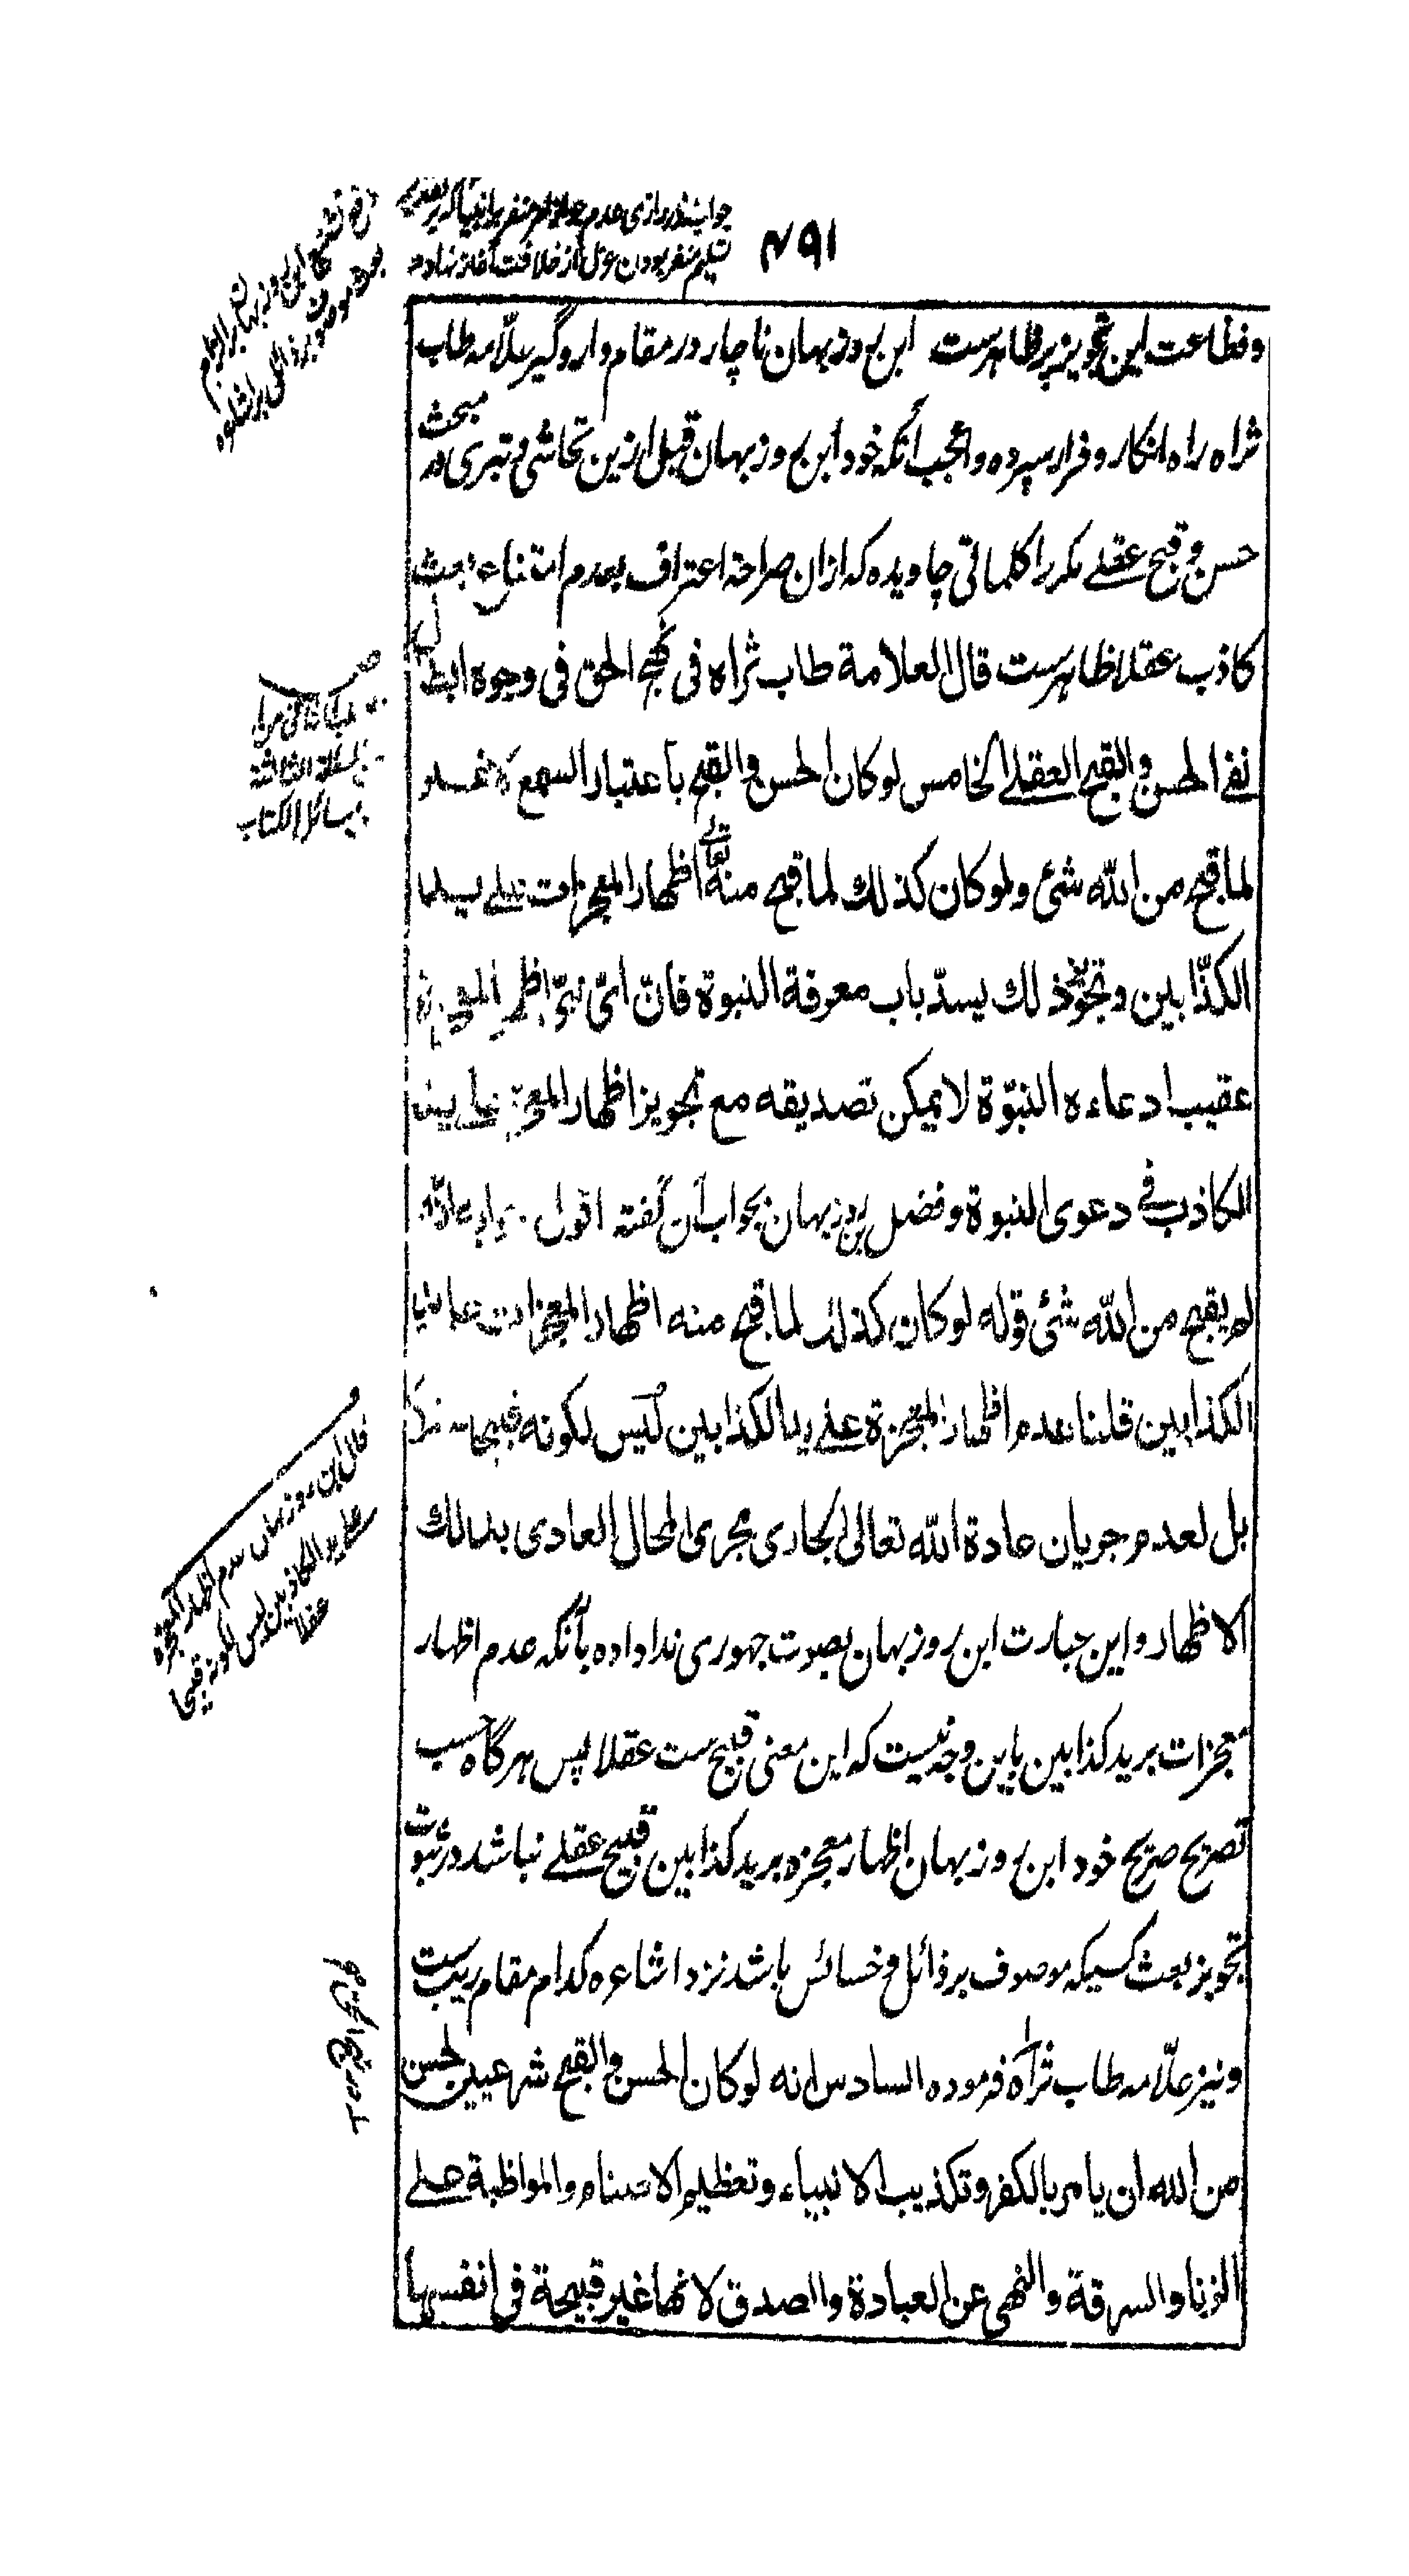 ۴۹۱
جواب
عدم
تسلیم منفر بودن عزل از خلافت آغاز نهاده
وفظاعت این تجویز پر ظاهرست ابن روزبهان ناچار در مقام دار وگیر علّامه طاب
ثراه راه انکار و فرار سپرده و اعجب آنکه خود ابن روزبهان قبل ازین تحاشی و تبری در مبحث
حسن و قبح عقلے مکررا کلماتی چاویده که ازان صراحة اعتراف بعدم امتناع بعث
کاذب عقلا ظاهرست قال العلامة طاب ثراه فی نهج الحق فی وجوه ابطال
نفے الحسن والقبح العقلے الخامس لو کان الحسن والقبح باعتبار السمع لا غیر
لما قبح من اللّه شئ ولو کان کذلك لما قبح منه تعالے اظهار المعجزات علے ید
الکذّابین وتجویز ذلك یسدّ باب معرفة النبوة فانّ ایّ نبیّ اظهر المعجزة
عقیب ادعاءه النبوّة لا یمکن تصدیقه مع تجویز اظهار المعجزة علے ید
الکاذب فے دعوی النبوة وفضل بن روزبهان بجواب آن گفته اقول
لم یقبح من اللّه شئ قوله لو کان کذلك لما قبح منه اظهار المعجزات علے ید
الکذابین قلنا عدم اظهار المعجزة علے ید الکذابین لیس لکونه قبیحا
بل لعدم جریان عادة اللّه تعالی الجاری مجری المحال العادی بذلك
الاظهار و این عبارت ابن روزبهان بصوت جهوری ندا داده بآنکه عدم اظهار
معجزات برید کذابین باین وجه نیست که این معنی قبیح ست عقلا پس هرگاه حسب
تصریح صریح خود ابن روزبهان اظهار معجزه برید کذابین قبیح عقلے نباشد در ثبوت
تجویز بعث کسیکه موصوف برذائل و خسائس باشد نزد اشاعره کدام مقام ریب ست
و نیز علّامه طاب ثراه فرموده السادس انه لو کان الحسن والقبح شرعیین لحسن
من اللّه ان یامر بالکفر وتکذیب الانبیاء وتعظیم الاصنام والمواظبة علے
الزنا والسرقة والنهی عن العبادة والصدق لانها غیر قبیحة فی انفسها
المسئلة الثالثة
مسائل الکتاب
قال ابن روزبهان عدم اظهار المعجزة
علے ید الکاذبین لیس لکونه قبیحا
عقلا